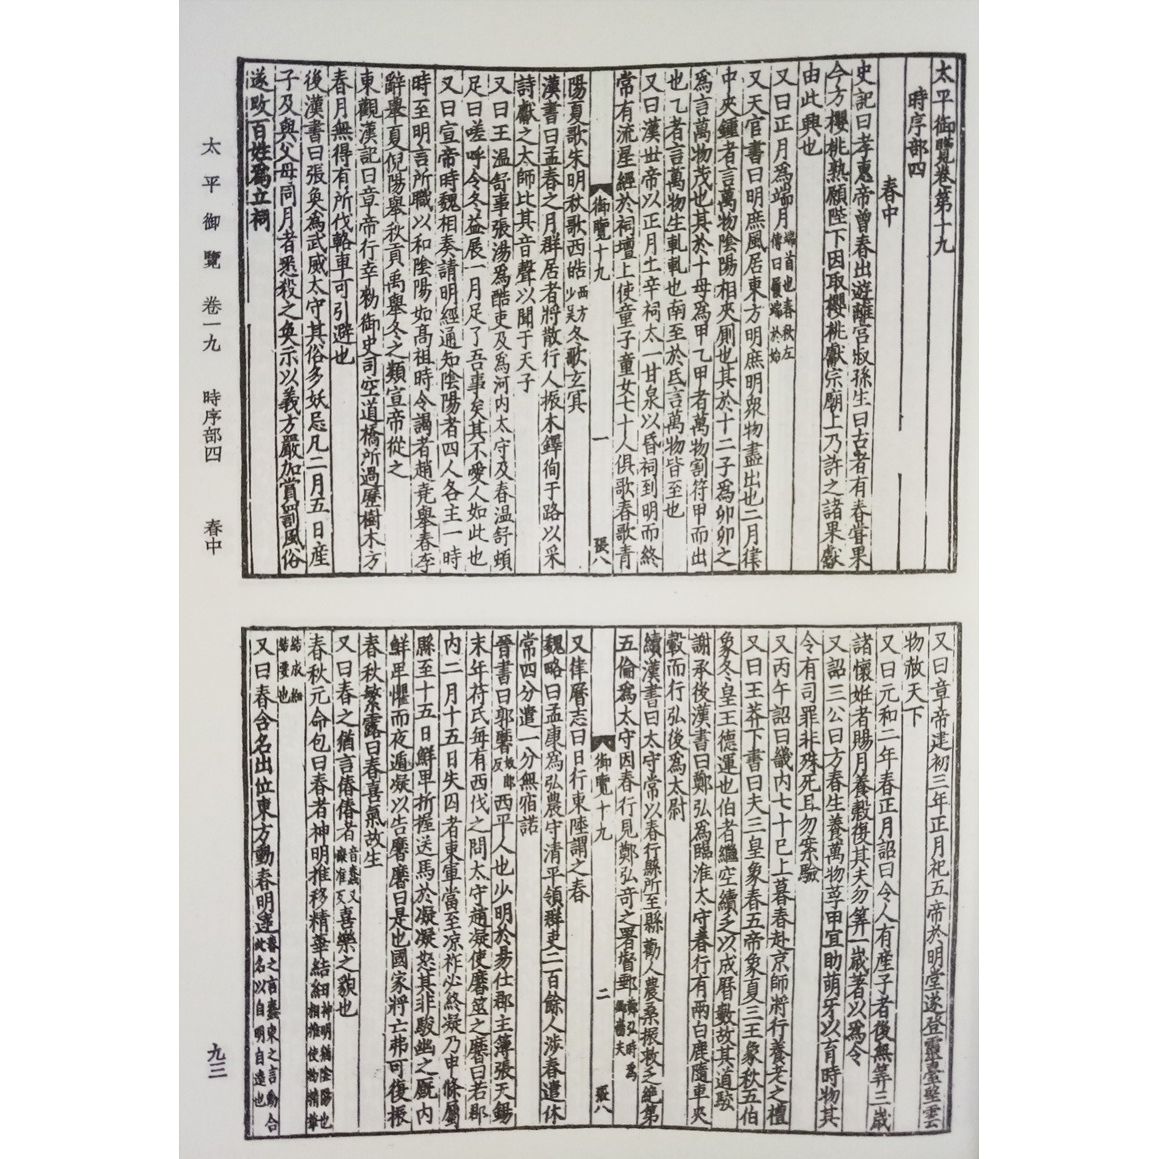 太平御覽卷第十九
時序部四
春中
史記曰孝惠帝曾春出遊離宮叔孫生曰古者有春嘗果
今方櫻桃熟願陛下因取櫻桃獻宗廟上乃許之諸果獻
由此興也
又曰正月爲端月端首也春秋左傳曰履端於始
又天官書曰明庶風居東方明庶明衆物盡出也二月律
中夾鍾者言萬物陰陽相夾厠也其於十二子爲卯卯之
爲言萬物茂也其於十母爲甲乙甲者萬物割符甲而出
也乙者言萬物生軋軋也南至於氐言萬物皆至也
又曰漢世帝以正月上辛祠太一甘泉以昏祠到明而終
常有流星經於祠壇上使童子童女七十人俱歌春歌青
御覽十九 一 張八
陽夏歌朱明秋歌西皓西方少昊冬歌玄冥
漢書曰孟春之月群居者將散行人振木鐸徇于路以采
詩獻之太師比其音聲以聞于天子
又曰王溫舒事張湯爲酷吏及爲河内太守及春溫舒頓
足曰嗟呼令冬益展一月足了吾事矣其不愛人如此也
又曰宣帝時魏相奏請明經通知陰陽者四人各主一時
時至明言所職以和陰陽如髙祖時令謁者趙堯舉春李
舜舉夏倪陽舉秋貢禹舉冬之類宣帝從之
東觀漢記曰章帝行幸勑御史司空道橋所過歷樹木方
春月無得有所伐輅車可引避也
後漢書曰張奐爲武威太守其俗多妖忌凡二月五日産
子及與父母同月者悉殺之奐示以義方嚴加賞罰風俗
遂改百姓爲立祠
又曰章帝建初三年正月祀五帝於明堂遂登靈臺望雲
物赦天下
又曰元和二年春正月詔曰令人有産子者後無筭三歲
諸懷姙者賜月養穀復其夫勿筭一歲著以爲令
又詔三公曰方春生養萬物莩甲宜助萌牙以育時物其
令有司罪非殊死且勿案驗
又丙午詔曰畿内七十巳上暮春赴京師將行養老之禮
又曰王莽下書曰夫三皇象春五帝象夏三王象秋五伯
象冬皇王德運也伯者繼空續乏以成曆數故其道駮
謝承後漢書曰鄭弘爲臨淮太守春行有兩白鹿隨車夾
轂而行弘後爲太尉
續漢書曰太守常以春行縣所至縣勸人農桑振救乏絶第
五倫爲太守因春行見鄭弘竒之署督郵鄭弘時爲嗇夫
御覽十九 二 張八
又律曆志曰日行東陸謂之春
魏略曰孟康爲弘農守清平領群吏二百餘人涉春遣休
常四分遣一分無宿諾
晉書曰郭黁奴昆反西平人也少明於昜仕郡主簿張天錫
末年苻氏每有西伐之問太守趙凝使黁筮之黁曰若郡
内二月十五日失囚者東軍當至涼祚必終凝乃申條屬
縣至十五日鮮卑折掘送馬於凝凝怒其非駿幽之厩内
鮮卑懼而夜遁凝以告黁黁曰是也國家將亡弗可復振
春秋繁露曰春喜氣故生
又曰春之猶言偆偆者音蠢又癡准反喜樂之貌也
春秋元命包曰春者神明推移精華結紐神明猶陰陽也相推使物精華
結成紐結要也
又曰春含名出位東方動春明逹春之言蠢東之言動含此名以自明自逹也
太平御覽 卷一九 時序部四 春中
九三